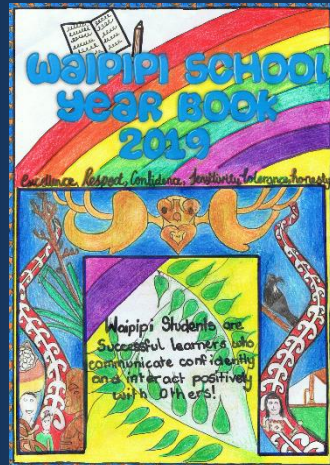 Waipipi School
Year Book
2019
Excellence, Respect, Confidence, Sensitivity, Tolerance, honesty
Waipipi Students are
Successful learners who
communicate confidently
and interact positively
with Others!